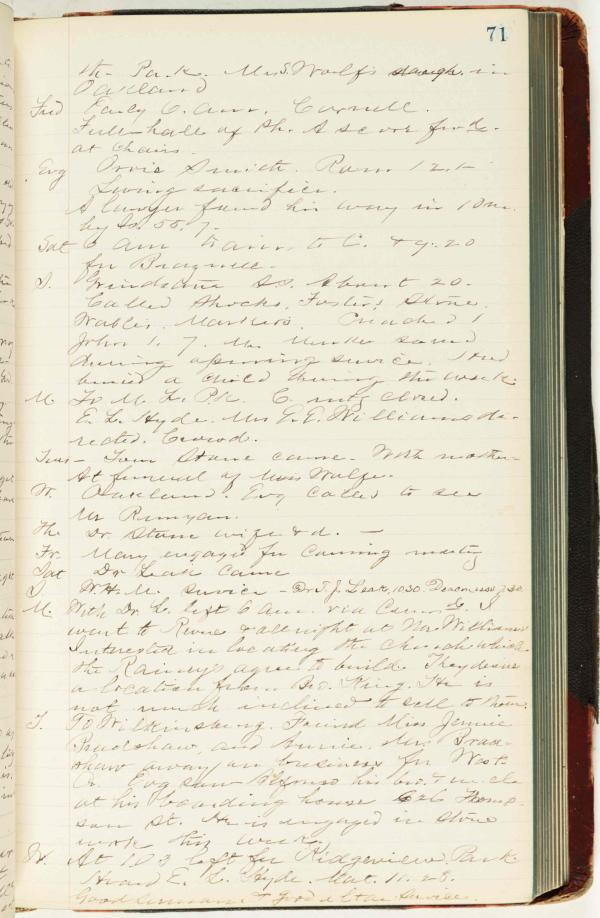 71
the Park. Mrs. Wolf's in
Oakland
Frd Early 6. a.m. Cornell.
Full hall of Ph. A
at chairs.
Evg Orvie Smith. Rom 12.1
Living sacrifice.
A lawyer found his way in 10 m.
by Is. 55. 7.
Sat 6 am to C. & 9.20
for
S. Grindstone SS. About 20.
Called Shocks, Fosters, Stone,
Preached 1
John 1. 7. Mr. sound
during opening service. Had
buried a child during the week.
M. To M. L. Pk. C. mtg closed.
E. L. Hyde. Mrs E. E. Williams di-
rected. Crowd.
Tues - Tom Stone came. With mother
At funeral of Miss Wolfe.
W. Oakland. Evg called to see
Mr Runyan.
Th. Dr. Stone wife & d. —
Fr. Mary engaged for coming meeting
Sat Dr Leak came
S. W.H.M. service - Dr T. J. Leak, 10.30. Deaconess 7.30
M. With Dr. L. left 6 am. via I
went to & all night at Mr Williams
Interested in locating the Church which
the Raineys agree to build. They desire
a location from Bro. King. He is
not much inclined to sell to
T. To Wilkinsburg. Found Miss Jennie
Bradshaw, and Annie. Mr. Brad-
shaw away on business for West.
Evg saw his bro. & uncle
at his boarding house 626 Thomp-
son St. He is engaged in stone
work this week.
W. At 10 3 left for Ridgeview Park.
Heard E. L. Hyde. Mat. 11. 28.
Good sermon & good altar service.